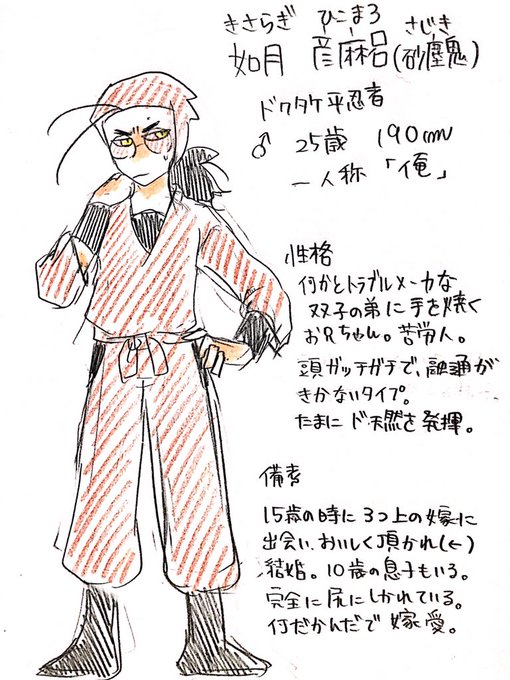 きさらぎ ひこまろ さじき
如月 彦麻呂(砂塵鬼)
ドクタケ平忍者
♂ 25歳 190cm
一人称「俺」
性格
何かとトラブルメーカな
双子の弟に手を焼く
お兄ちゃん。苦労人。
頭ガッチガチで、融通が
きかないタイプ。
たまにド天然を発揮。
備考
15歳の時に3つ上の嫁に
出会い、おいしく頂かれ(←)
結婚。10歳の息子もいる。
完全に尻にしかれている。
何だかんだで嫁愛。